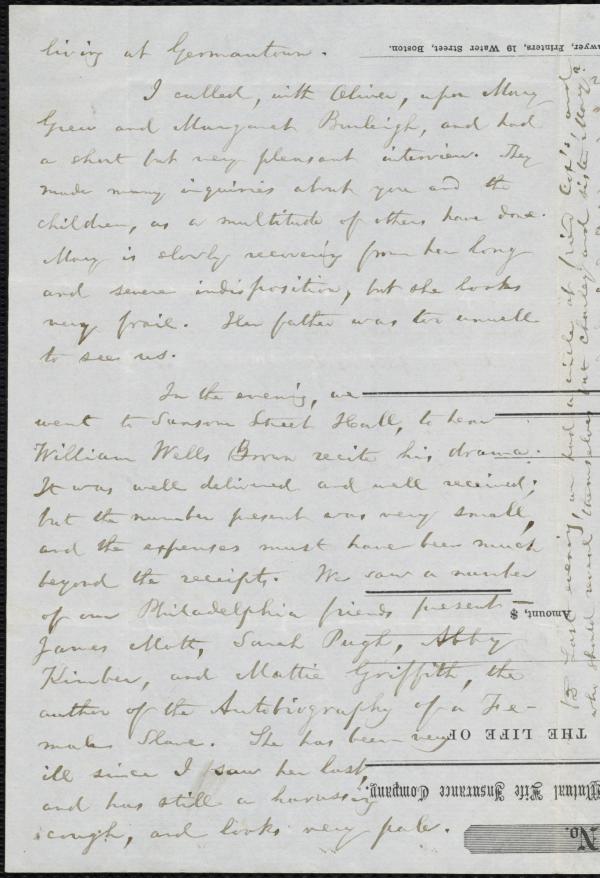 living at Germantown.
I called, with Oliver, upon Mary
Grew and Margaret Burleigh, and had
a short but very pleasant interview. They
made many inquiries about you and the
children, as a multitude of others have done.
Mary is slowly recovering from her long
and severe indisposition, but she looks
very frail. Her father was too unwell
to see us.
In the evening, we
went to Sansom Street Hall, to hear
William Wells Brown recite his drama.
It was well delivered and well received;
but the number present was very small,
and the expenses must have been much
beyond the receipts. We saw a number
of our Philadelphia friends present—
James Mott, Sarah Pugh, Abby
Kimber, and Mattie Griffith, the
author of the Autobiography of a Fe-
male Slave. She has been very
ill since I saw her last,
and has still a harassing
cough, and looks very pale.
Last evening, we had a circle at friend and
who should reveal themselves but Charley and sister Mary?
No.
Mutual Life Insurance Company.
THE LIFE OF
Amount, $
Printers, 19 Water Street, Boston.